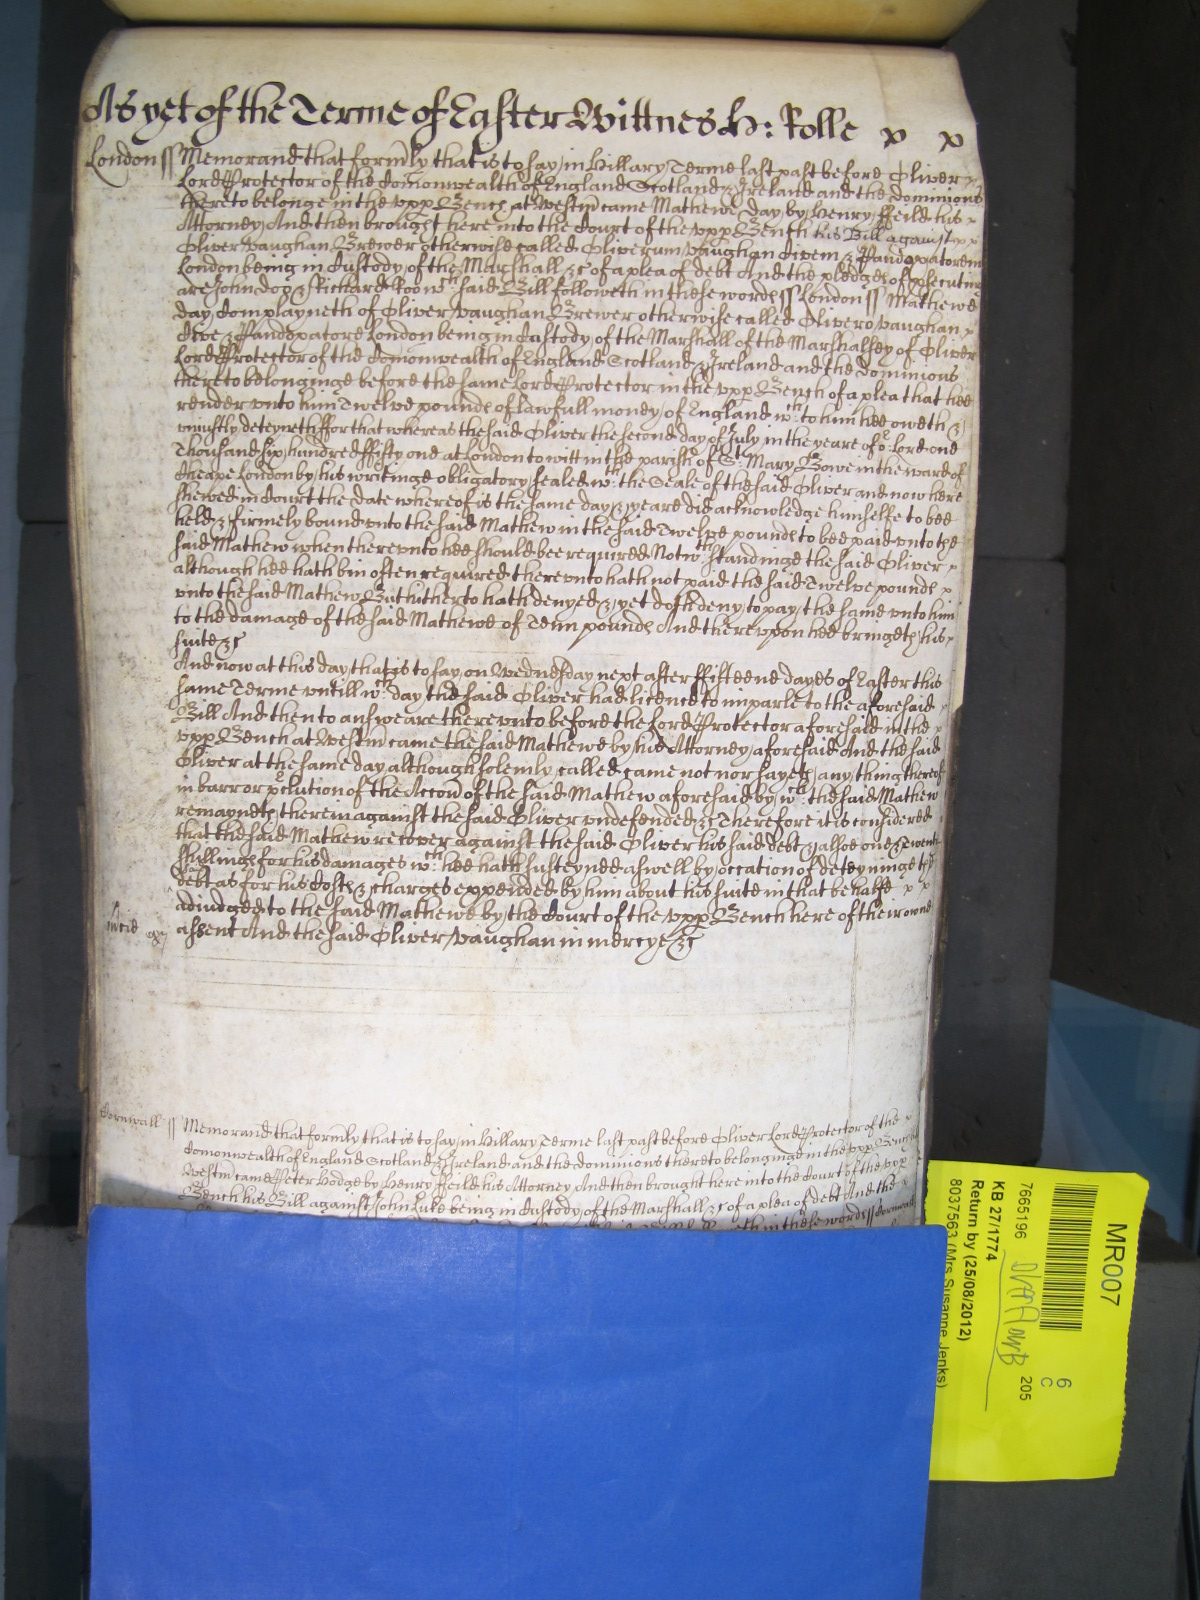 As yet of the Terme of Easter Wittnes H: Rolle x x
London ss Memorand that formly that is to say in Hillary Terme last past before Oliver
Lord Protector of the Comonwealth of England Scotland & Ireland and the dominions
thereto belonge in the vpp Bench at Westm came Mathewe Day by Henry ffeild his
Attorney And then brought here into the Court of the vpp Bench his Bill against
Oliver Vaughan Brewer otherwise called Oliverum Vaughan Civem & Pandoxatorem
London being in Custody of the Marshall &c of a plea of debt And the pledges of psecuting
are John doo & Richard Roo wch said Bill followeth in these words ss London ss Mathewe
day Complayneth of Oliver Vaughan Brewer otherwise called Olivero Vaughan
Cive & Pandoxatore London being in Custody of the Marshall of the Marshallsey of Oliver
Lord Protector of the Comonwealth of England Scotland & Ireland and the dominions
thereto belonginge before the same Lord Protector in the vpp Bench of a plea that hee
render vnto him Twelve pounds of lawfull money of England wch to him hee oweth &
vniustly deteyneth ffor that whereas the said Oliver the second day of July in the yeare of or Lord one
Thousand six hundred ffifty one at London to witt in the parish of St Mary Bowe in the ward of
Cheape London by his writinge obligatory sealed wth the Seale of the said Oliver and now here
shewed in Court the date whereof is the same day & yeare did acknowledge himselfe to bee
held & firmely bound vnto the said Mathew in the said Twelve pounds to bee paid vnto the
said Mathew when therevnto hee should bee required Notwthstandinge the said Oliver
although hee hath bin often required therevnto hath not paid the said Twelve pounds
vnto the said Mathew But hitherto hath denyed & yet doth deny to pay the same vnto him
to the damage of the said Mathewe of Tenn pounds And therevpon hee bringeth his
suite &c
And now at this day that is to say on Wednesday next after ffifteene dayes of Easter this
same Terme vntill wch day the said Oliver had licence to imparle to the aforesaid
Bill And then to answeare therevnto before the Lord Protector aforesaid in the
vpp Bench at Westm came the said Mathewe by his Attorney aforesaid And the said
Oliver at the same day although solemly called came not nor sayeth any thing thereof
in barr or pclution of the Accon of the said Mathew aforesaid by wch the said Mathew
remayneth therein against the said Oliver vndefended &c Therefore it is considered
that the said Mathew recover against the said Oliver his said debt & alsoe one & twenty
shillings for his damages wch hee hath susteyned aswell by occation of deteyninge the
debt as for his Costs & charges expended by him about his suite in that behalfe
adiudged to the said Mathewe by the Court of the vpp Bench here of their owne
assent And the said Oliver Vaughan in mercye &c
Cornwall ss Memorand that formly that is to say in Hillary Terme last past before Oliver Lord Protector of the
Comonwealth of England Scotland & Ireland and the dominions thereto belonginge in the vpp Bench at
Westm came Peter Hodge by Henry ffeild his Attorney And then brought here into the Court of the vpp
Bench his Bill against John Luke being in Custody of the Marshall &c of a plea of debt And the
in these words ss Cornwall
MR007
6
C
205
7665196
KB 27/1774
Return by (25/08/2012)
8037563 (Mrs Susanne Jenks)